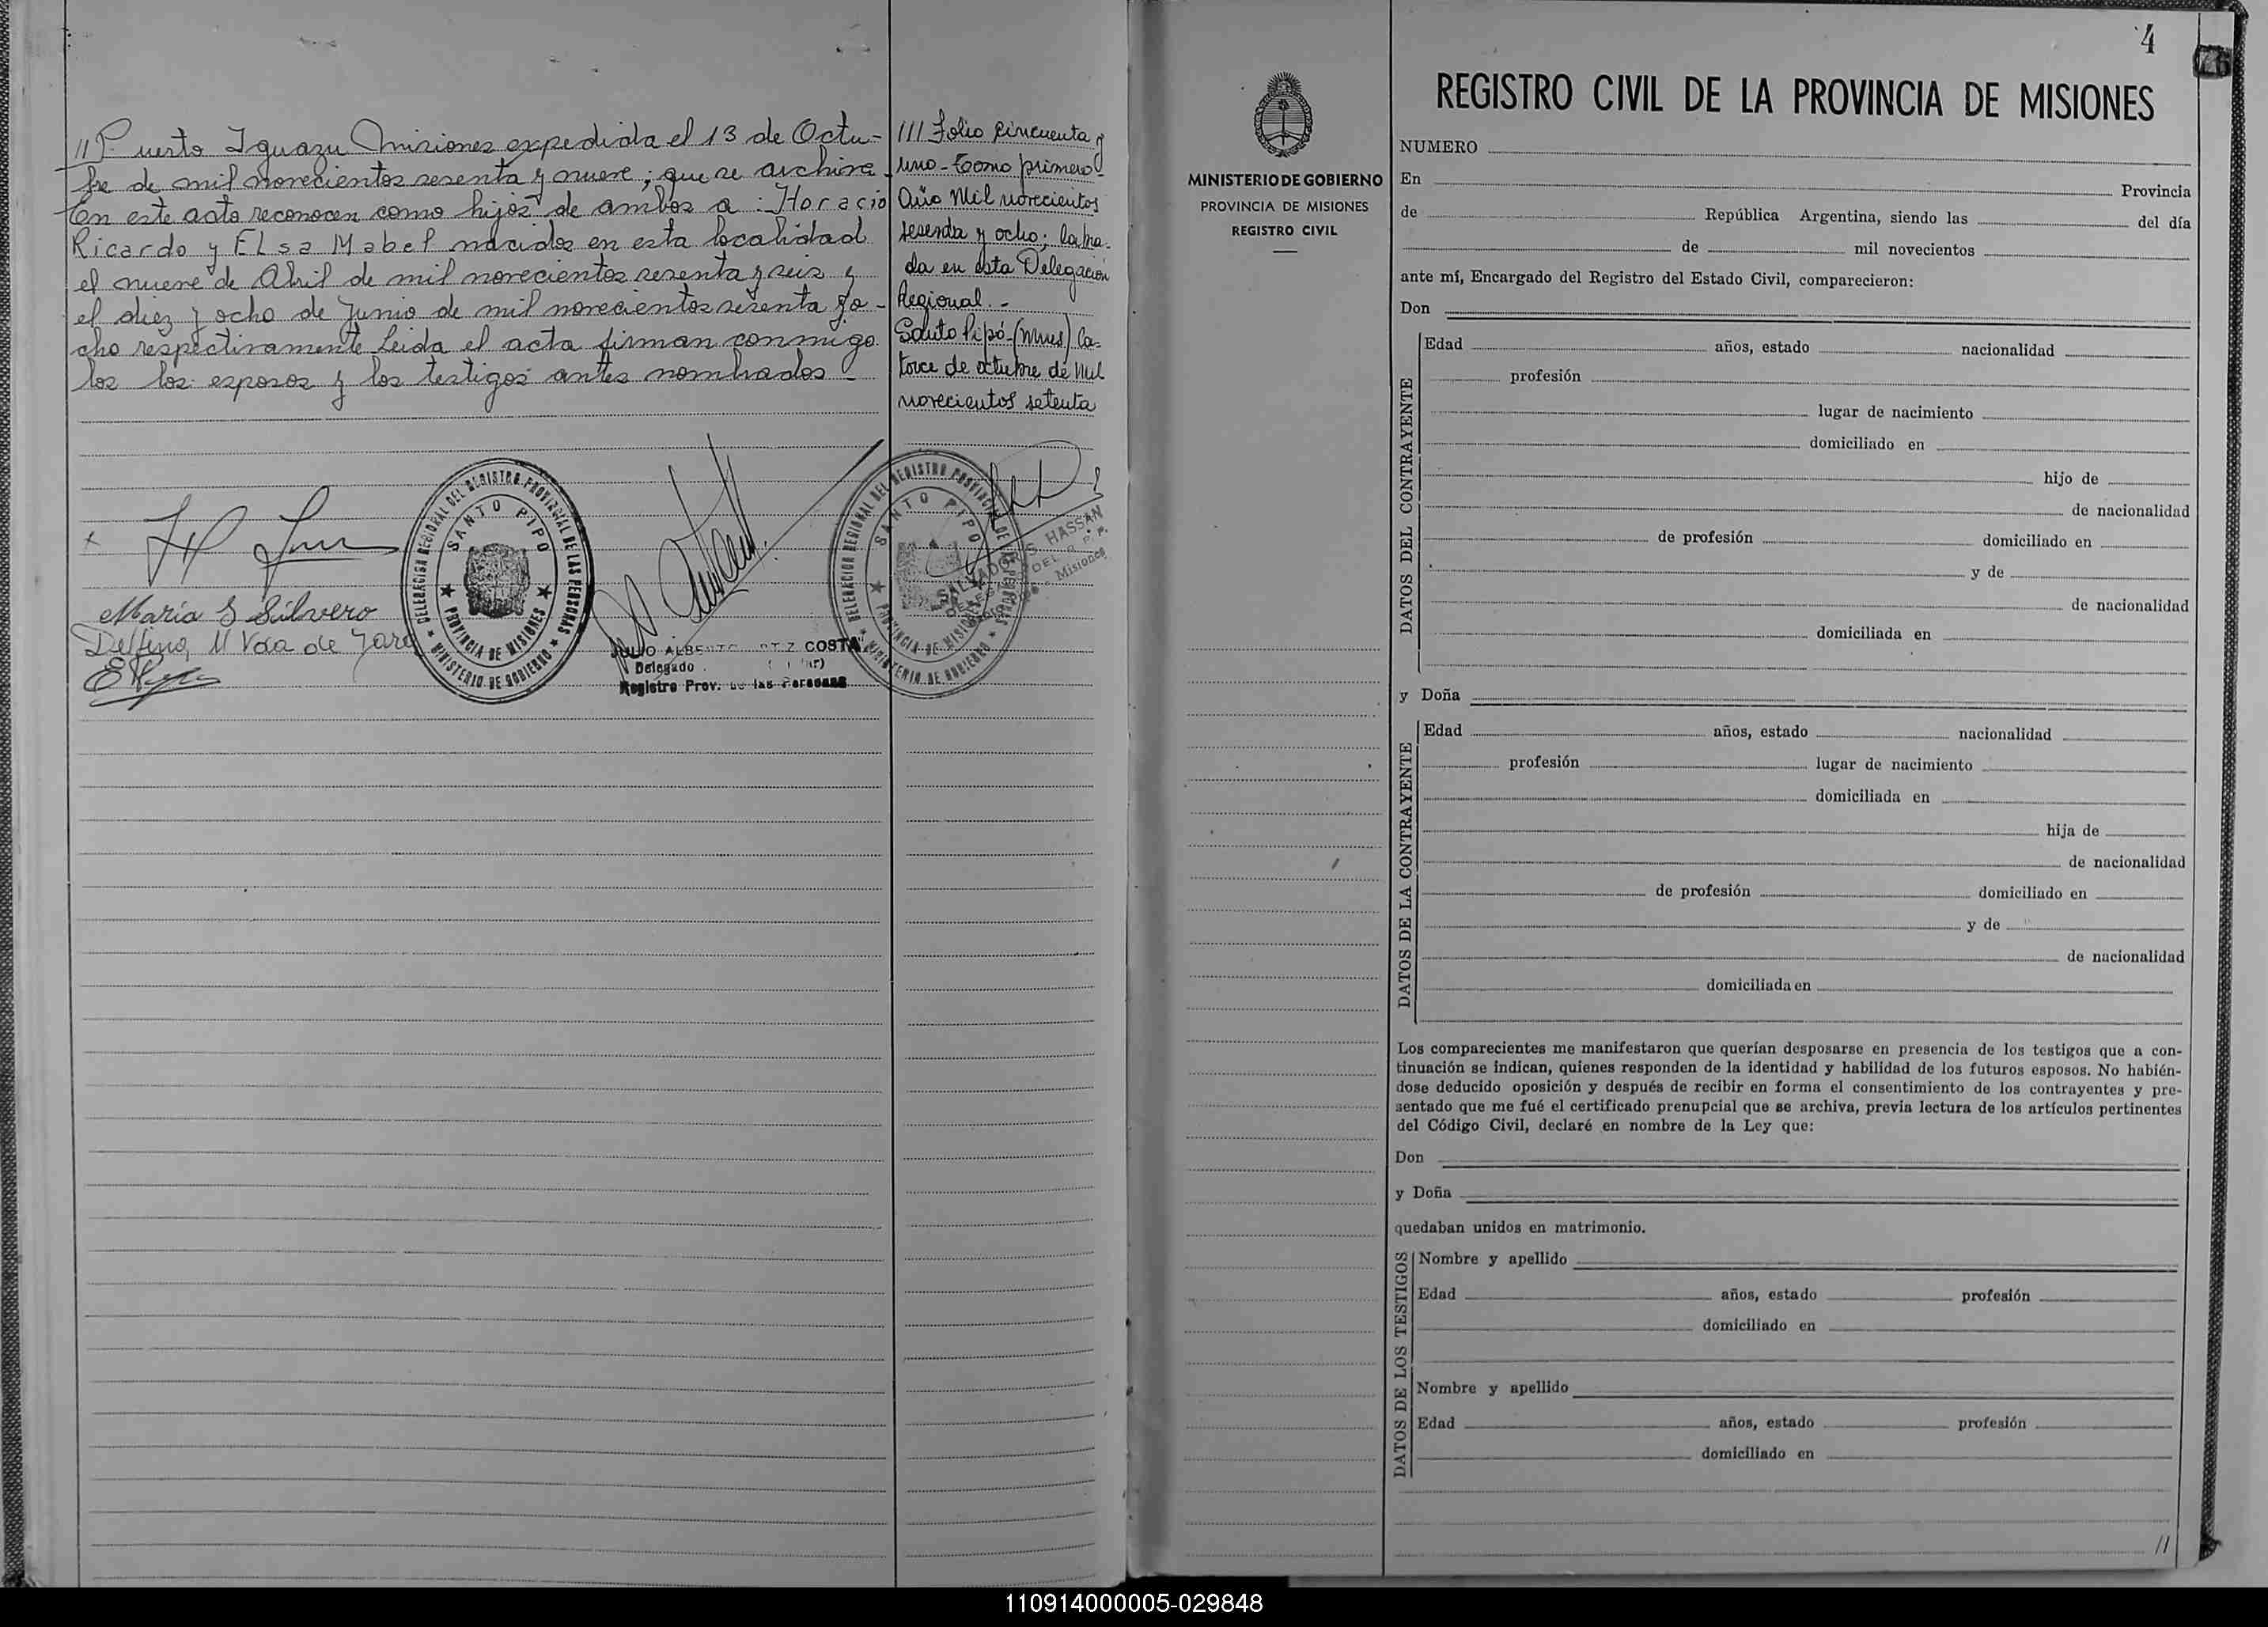 // Puerto Iguazu Misiones expedida el 13 de Octu-
bre de mil novecientos sesenta y nueve; que se archiva-
En este acto reconocen como hijos de ambos a : Horacio
Ricardo y ELsa Mabel nacidos en esta localidad
el nueve de Abril de mil novecientos sesenta y seis y
el diez y ocho de Junio de mil novecientos sesenta y o-
cho respectivamente Leida el acta firman conmigo
los los esposos y los testigos antes nombrados-
María S Silvero
Delfina M Vda de Jara
DELEGACION REGIONAL DEL REGISTRO PROVINCIAL DE LAS PERSONAS
SANTO PIPO
PROVINCIA DE MISIONES
MINISTERIO DE GOBIERNO
JULIO ALBERTO COSTA
Delegado
Registro Prov. de las Personas
/// Folio cincuenta y
uno- Tomo primero-
Año Mil novecientos
sesenta y ocho; labra-
da en esta Delegación
Regional.-
Santo Pipó-(Mnes) Ca-
torce de octubre de Mil
novecientos setenta
DELEGACION REGIONAL DEL REGISTRO PROVINCIAL DE LAS PERSONAS
SANTO PIPO
PROVINCIA DE MISIONES
MINISTERIO DE GOBIERNO
SALVADOR S HASSAN
DEL R. P. P.
Misiones
4
76
MINISTERIO DE GOBIERNO
PROVINCIA DE MISIONES
REGISTRO CIVIL
REGISTRO CIVIL DE LA PROVINCIA DE MISIONES
NUMERO
En Provincia
de República Argentina, siendo las del día
de mil novecientos
ante mí, Encargado del Registro del Estado Civil, comparecieron:
Don
DATOS DEL CONTRAYENTE
Edad años, estado nacionalidad
profesión
lugar de nacimiento
domiciliado en
hijo de
de nacionalidad
de profesión domiciliado en
y de
de nacionalidad
domiciliada en
y Doña
DATOS DE LA CONTRAYENTE
Edad años, estado nacionalidad
profesión lugar de nacimiento
domiciliada en
hija de
de nacionalidad
de profesión domiciliado en
y de
de nacionalidad
domiciliada en
Los comparecientes me manifestaron que querían desposarse en presencia de los testigos que a con-
tinuación se indican, quienes responden de la identidad y habilidad de los futuros esposos. No habién-
dose deducido oposición y después de recibir en forma el consentimiento de los contrayentes y pre-
sentado que me fué el certificado prenupcial que se archiva, previa lectura de los artículos pertinentes
del Código Civil, declaré en nombre de la Ley que:
Don
y Doña
quedaban unidos en matrimonio.
DATOS DE LOS TESTIGOS
Nombre y apellido
Edad años, estado profesión
domiciliado en
Nombre y apellido
Edad años, estado profesión
domiciliado en
//
110914000005-029848